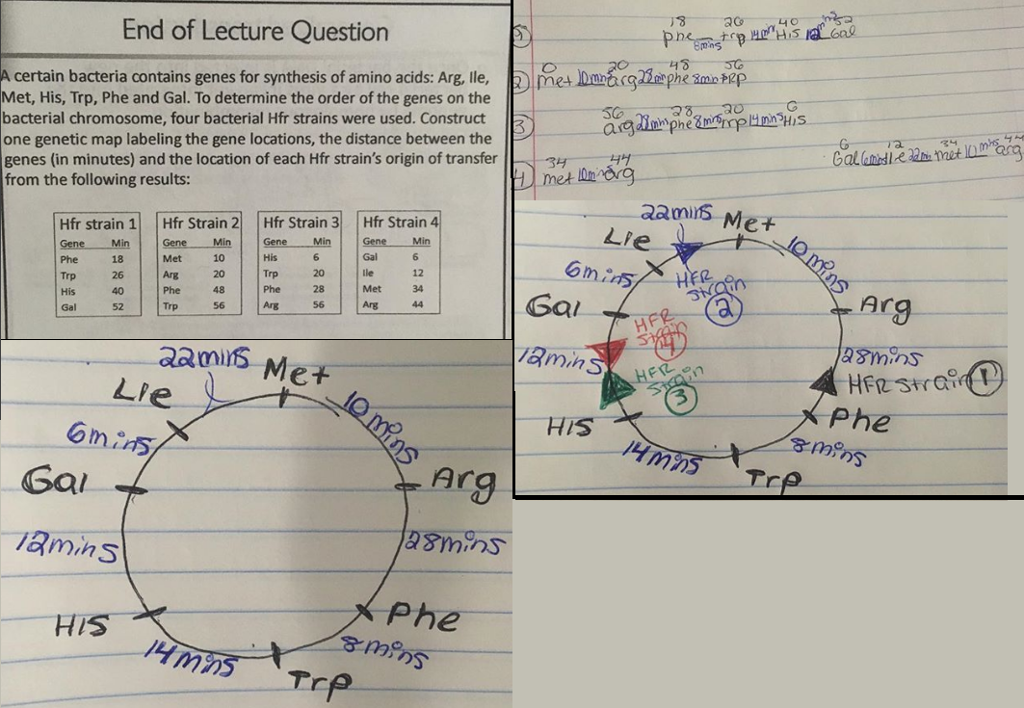 End of Lecture Question
A certain bacteria contains genes for synthesis of amino acids: Arg, Ile,
Met, His, Trp, Phe and Gal. To determine the order of the genes on the
bacterial chromosome, four bacterial Hfr strains were used. Construct
one genetic map labeling the gene locations, the distance between the
genes (in minutes) and the location of each Hfr strain's origin of transfer
from the following results:
Hfr strain 1
Gene Min
Phe 18
Trp 26
His 40
Gal 52
Hfr Strain 2
Gene Min
Met 10
Arg 20
Phe 48
Trp 56
Hfr Strain 3
Gene Min
His 6
Trp 20
Phe 28
Arg 56
Hfr Strain 4
Gene Min
Gal 6
Ile 12
Met 34
Arg 44
18 26 40 52
phe 8mins trp 14min HIS 12mins Gal
2) 0 20 48 56
met 10min arg 28min phe 8min trp
3 56 28 20 6
arg 28min phe 8mins trp 14mins HIS
4) 34 44
met 10min arg
6 12 34 44
Gal 6min Ile 22min met 10mins arg
22mins
Met
LIe
10mins
6mins
HFR
strain
2
Gal
Arg
HFR
strain
4
12mins
28mins
HFR
strain
3
HFR strain 1
HIS
Phe
14mins
8mins
Trp
22mins
Met
LIe
10mins
6mins
Gal
Arg
12mins
28mins
HIS
Phe
14mins
8mins
Trp